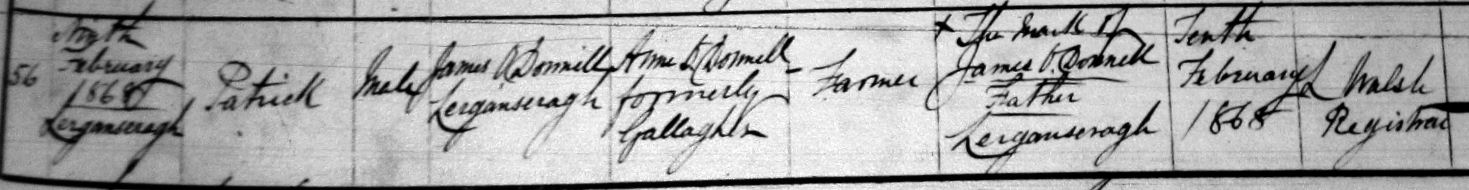 56
Ninth
February
1868
Lerganseragh
Patrick
Male
James O'Donnell
Lerganseragh
Anne O'Donnell
formerly
Gallagher
Farmer
X The mark of
James O'Donnell
Father
Lerganseragh
Tenth
February
1868
L Walsh
Registrar